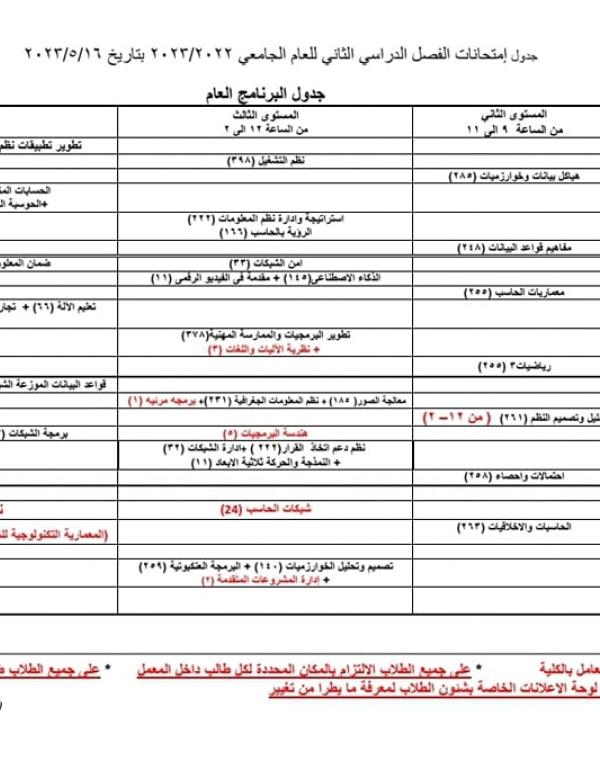 جدول إمتحانات الفصل الدراسي الثاني للعام الجامعي ٢٠٢٣/٢٠٢٢ بتاريخ ٢٠٢٣/٥/١٦
جدول البرنامج العام
المستوى الثاني
من الساعة ٩ الى ١١
المستوى الثالث
من الساعة ١٢ الى ٢
تطوير تطبيقات نظم
نظم التشغيل (٣٩٨)
هياكل بيانات وخوارزميات (٢٨٥)
الحسابات
+الحوسبة
استراتيجة وادارة نظم المعلومات (٢٢٢)
الرؤية بالحاسب (١٦٦)
مفاهيم قواعد البيانات (٢٤٨)
امن الشبكات (٣٣)
ضمان
الذكاء الاصطناعى(١٤٥) + مقدمة فى الفيديو الرقمى (١١)
معماريات الحاسب (٢٥٥)
تعليم الألة (٦٦) +
تطوير البرمجيات والممارسة المهنية(٣٧٨)
+ نظرية الأليات واللغات (٣)
رياضيات٣ (٢٥٥)
قواعد البيانات الموزعة
معالجة الصور( ١٨٥) + نظم المعلومات الجغرافية (٢٣١)+ برمجه مرئيه (١)
وتصميم النظم (٢٦١) ( من ١٢– ٢)
هندسة البرمجيات (٥)
برمجة الشبكات
نظم دعم اتخاذ القرار(٢٢٢ ) +ادارة الشبكات (٣٢)
+ النمذجة والحركة ثلاثية الابعاد (١١)
احتمالات واحصاء (٢٥٨)
شبكات الحاسب (24)
الحاسبات والاخلاقيات (٢٦٣)
(المعمارية التكنولوجية
تصميم وتحليل الخوارزميات (١٤٠) + البرمجة العنكبوتية (٢٥٩)
+ إدارة المشروعات المتقدمة (٢)
بالكلية * على جميع الطلاب الإلتزام بالمكان المحددة لكل طالب داخل المعمل * على جميع الطلاب
لوحة الاعلانات الخاصة بشئون الطلاب لمعرفة ما يطرا من تغيير